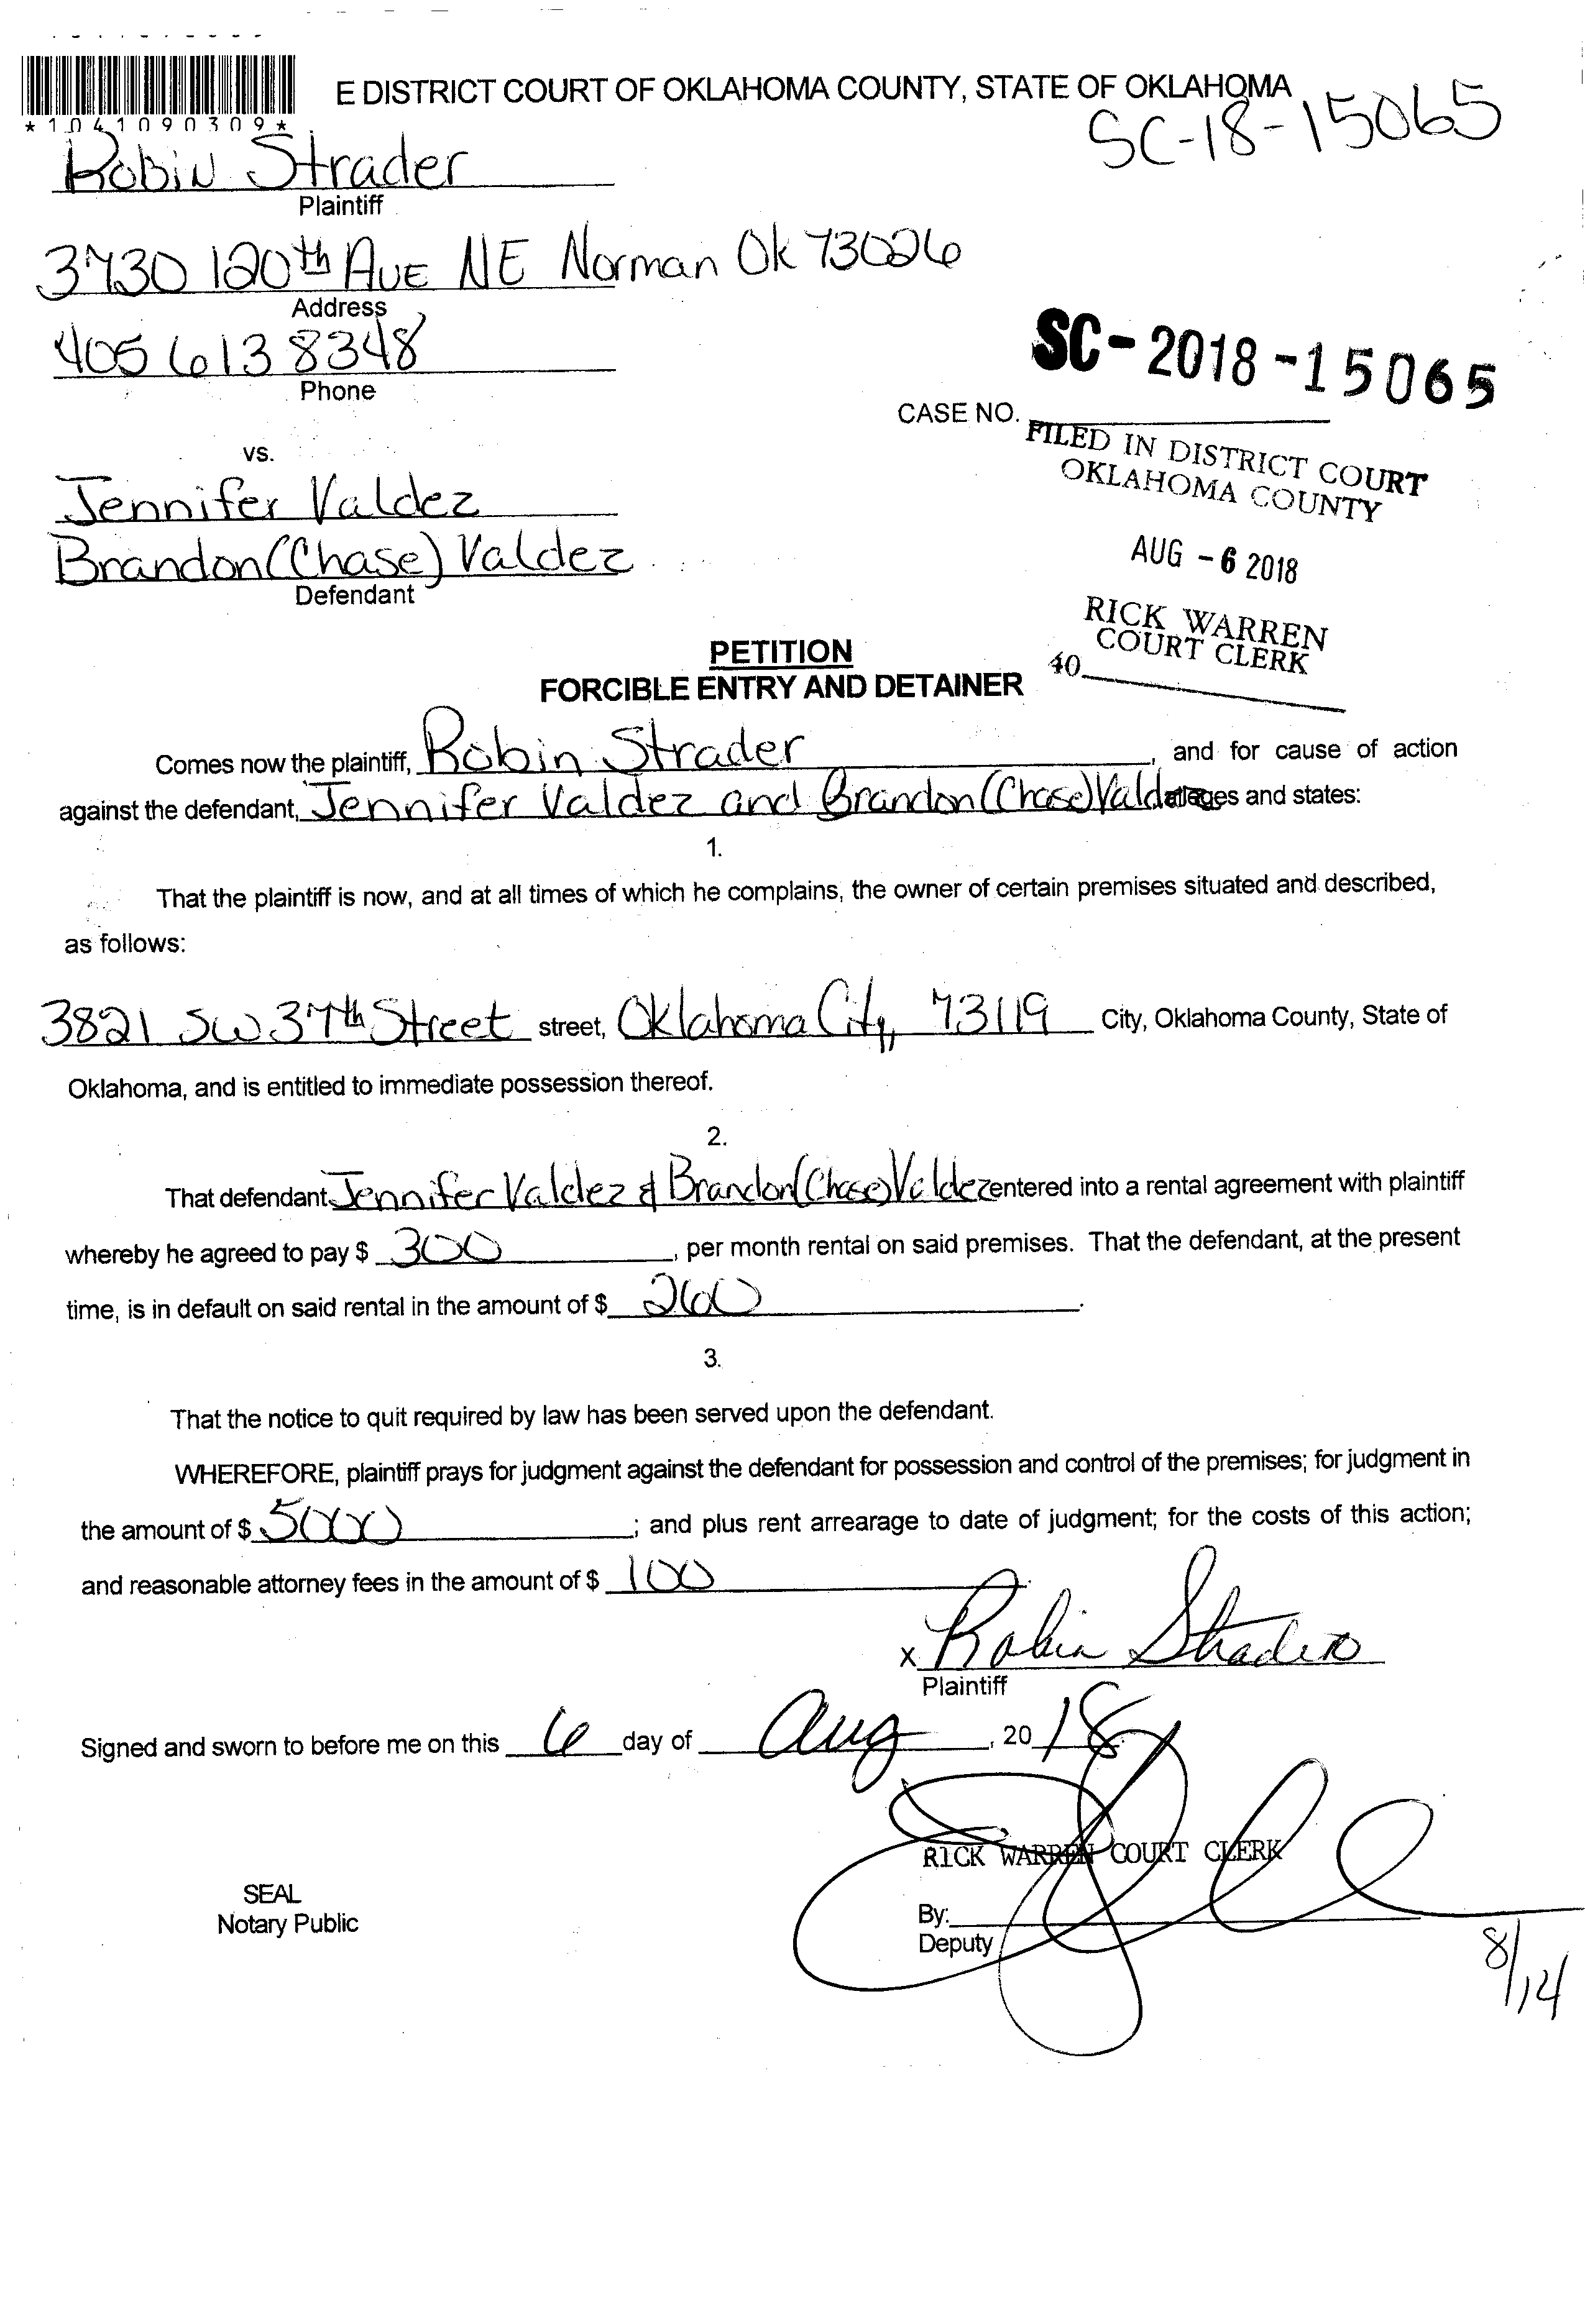 E DISTRICT COURT OF OKLAHOMA COUNTY, STATE OF OKLAHOMA
*1041090309*
SC-18-15065
Robin Strader
Plaintiff
3730 120th Ave NE Norman Ok 73026
Address
405 613 8348
Phone
SC-2018-15065
CASE NO.
FILED IN DISTRICT COURT
OKLAHOMA COUNTY
vs.
Jennifer Valdez
Brandon (Chase) Valdez
Defendant
AUG -6 2018
RICK WARREN
COURT CLERK
40
PETITION
FORCIBLE ENTRY AND DETAINER
Comes now the plaintiff, Robin Strader, and for cause of action
against the defendant, Jennifer Valdez and Brandon (Chase) Valdez alleges and states:
1.
That the plaintiff is now, and at all times of which he complains, the owner of certain premises situated and described,
as follows:
3821 SW 37th Street street, Oklahoma City, 73119 City, Oklahoma County, State of
Oklahoma, and is entitled to immediate possession thereof.
2.
That defendant Jennifer Valdez & Brandon (Chase) Valdez entered into a rental agreement with plaintiff
whereby he agreed to pay $ 300, per month rental on said premises. That the defendant, at the present
time, is in default on said rental in the amount of $ 260.
3.
That the notice to quit required by law has been served upon the defendant.
WHEREFORE, plaintiff prays for judgment against the defendant for possession and control of the premises; for judgment in
the amount of $ 5000; and plus rent arrearage to date of judgment; for the costs of this action;
and reasonable attorney fees in the amount of $ 100.
x Robin Strader
Plaintiff
Signed and sworn to before me on this 6 day of Aug, 2018
RICK WARREN COURT CLERK
SEAL
Notary Public
By:
Deputy
8/14